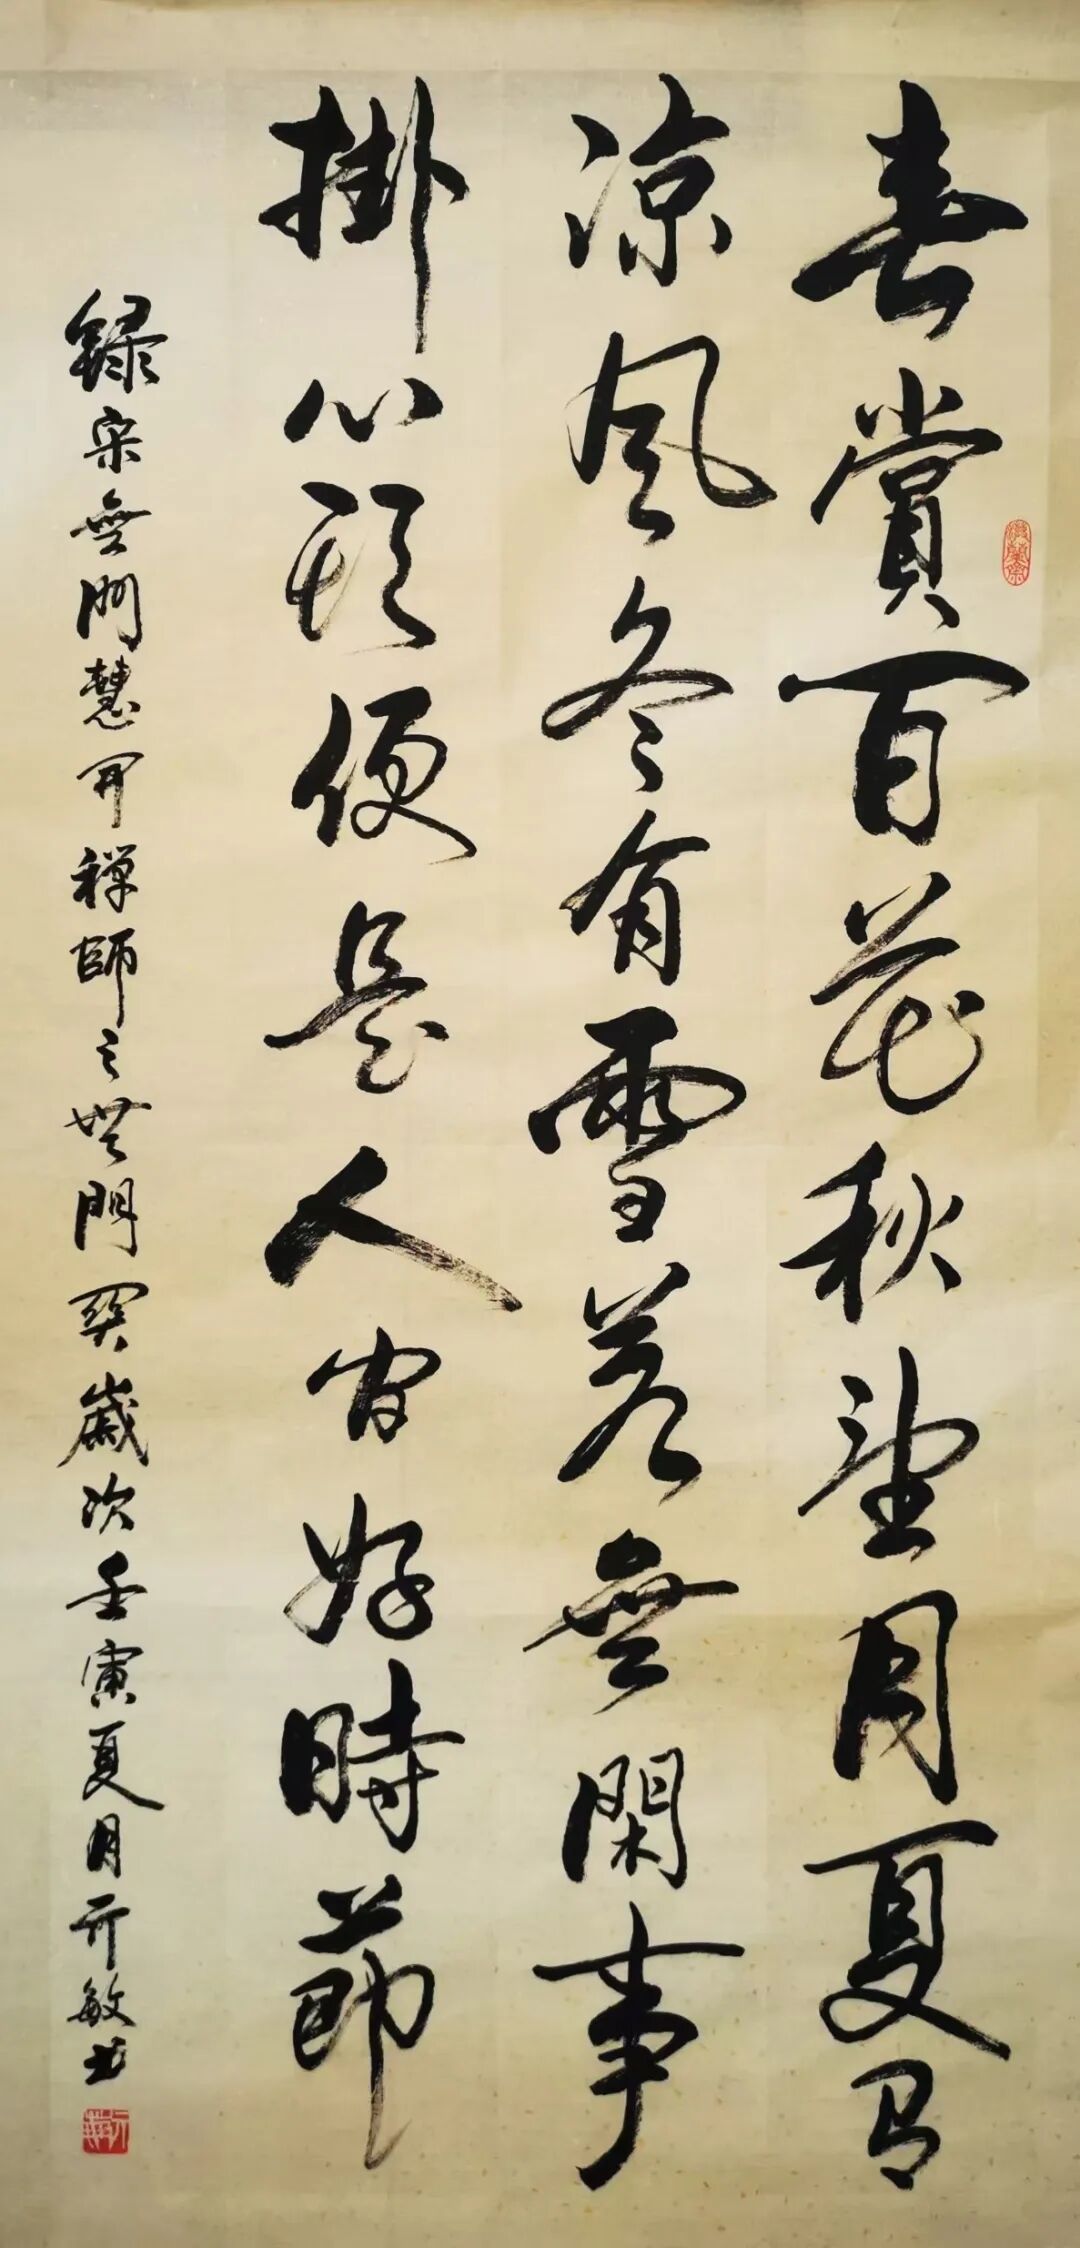 春賞百花秋望月夏有
涼風冬有雪若無閑事
掛心頭便是人間好時節
録宋無門慧開禪師之無門関歲次壬寅夏月亓敏书